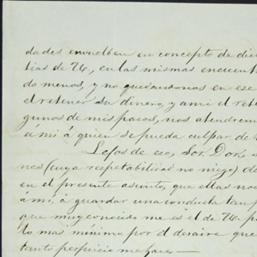 dades envuelben en concepto de die
tias de 74, en las mismas encuent
do menos, y no quedandonos en ese
el retener su dinero, y ami el reti
gunos de mis pasos, nos atendrem
a mi á quien se pueda culpar de
Lejos de eso, Sor. Dor, a
nes (cuya respetabilidad no niego) de
en el presente asunto, que ellas no
á mi, á guardar una conducta tan
que muy conocido me es el de 74. p
lo mas minimo por el desaire que
tanto perjuicio me hace